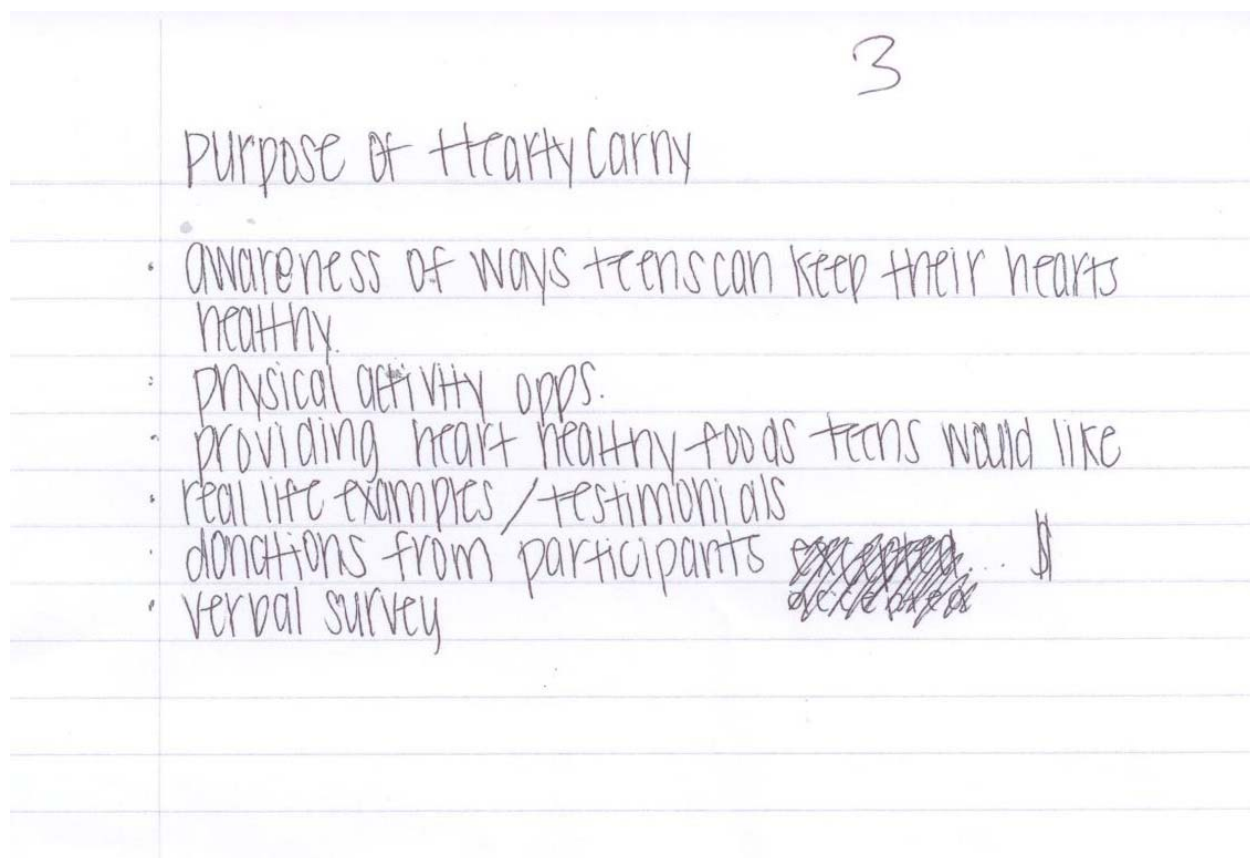 3
purpose of Hearty Carny
• awareness of ways teens can keep their hearts
healthy.
• physical activity opps.
• providing heart healthy foods teens would like
• real life examples / testimonials
• donations from participants ... $
• verbal survey